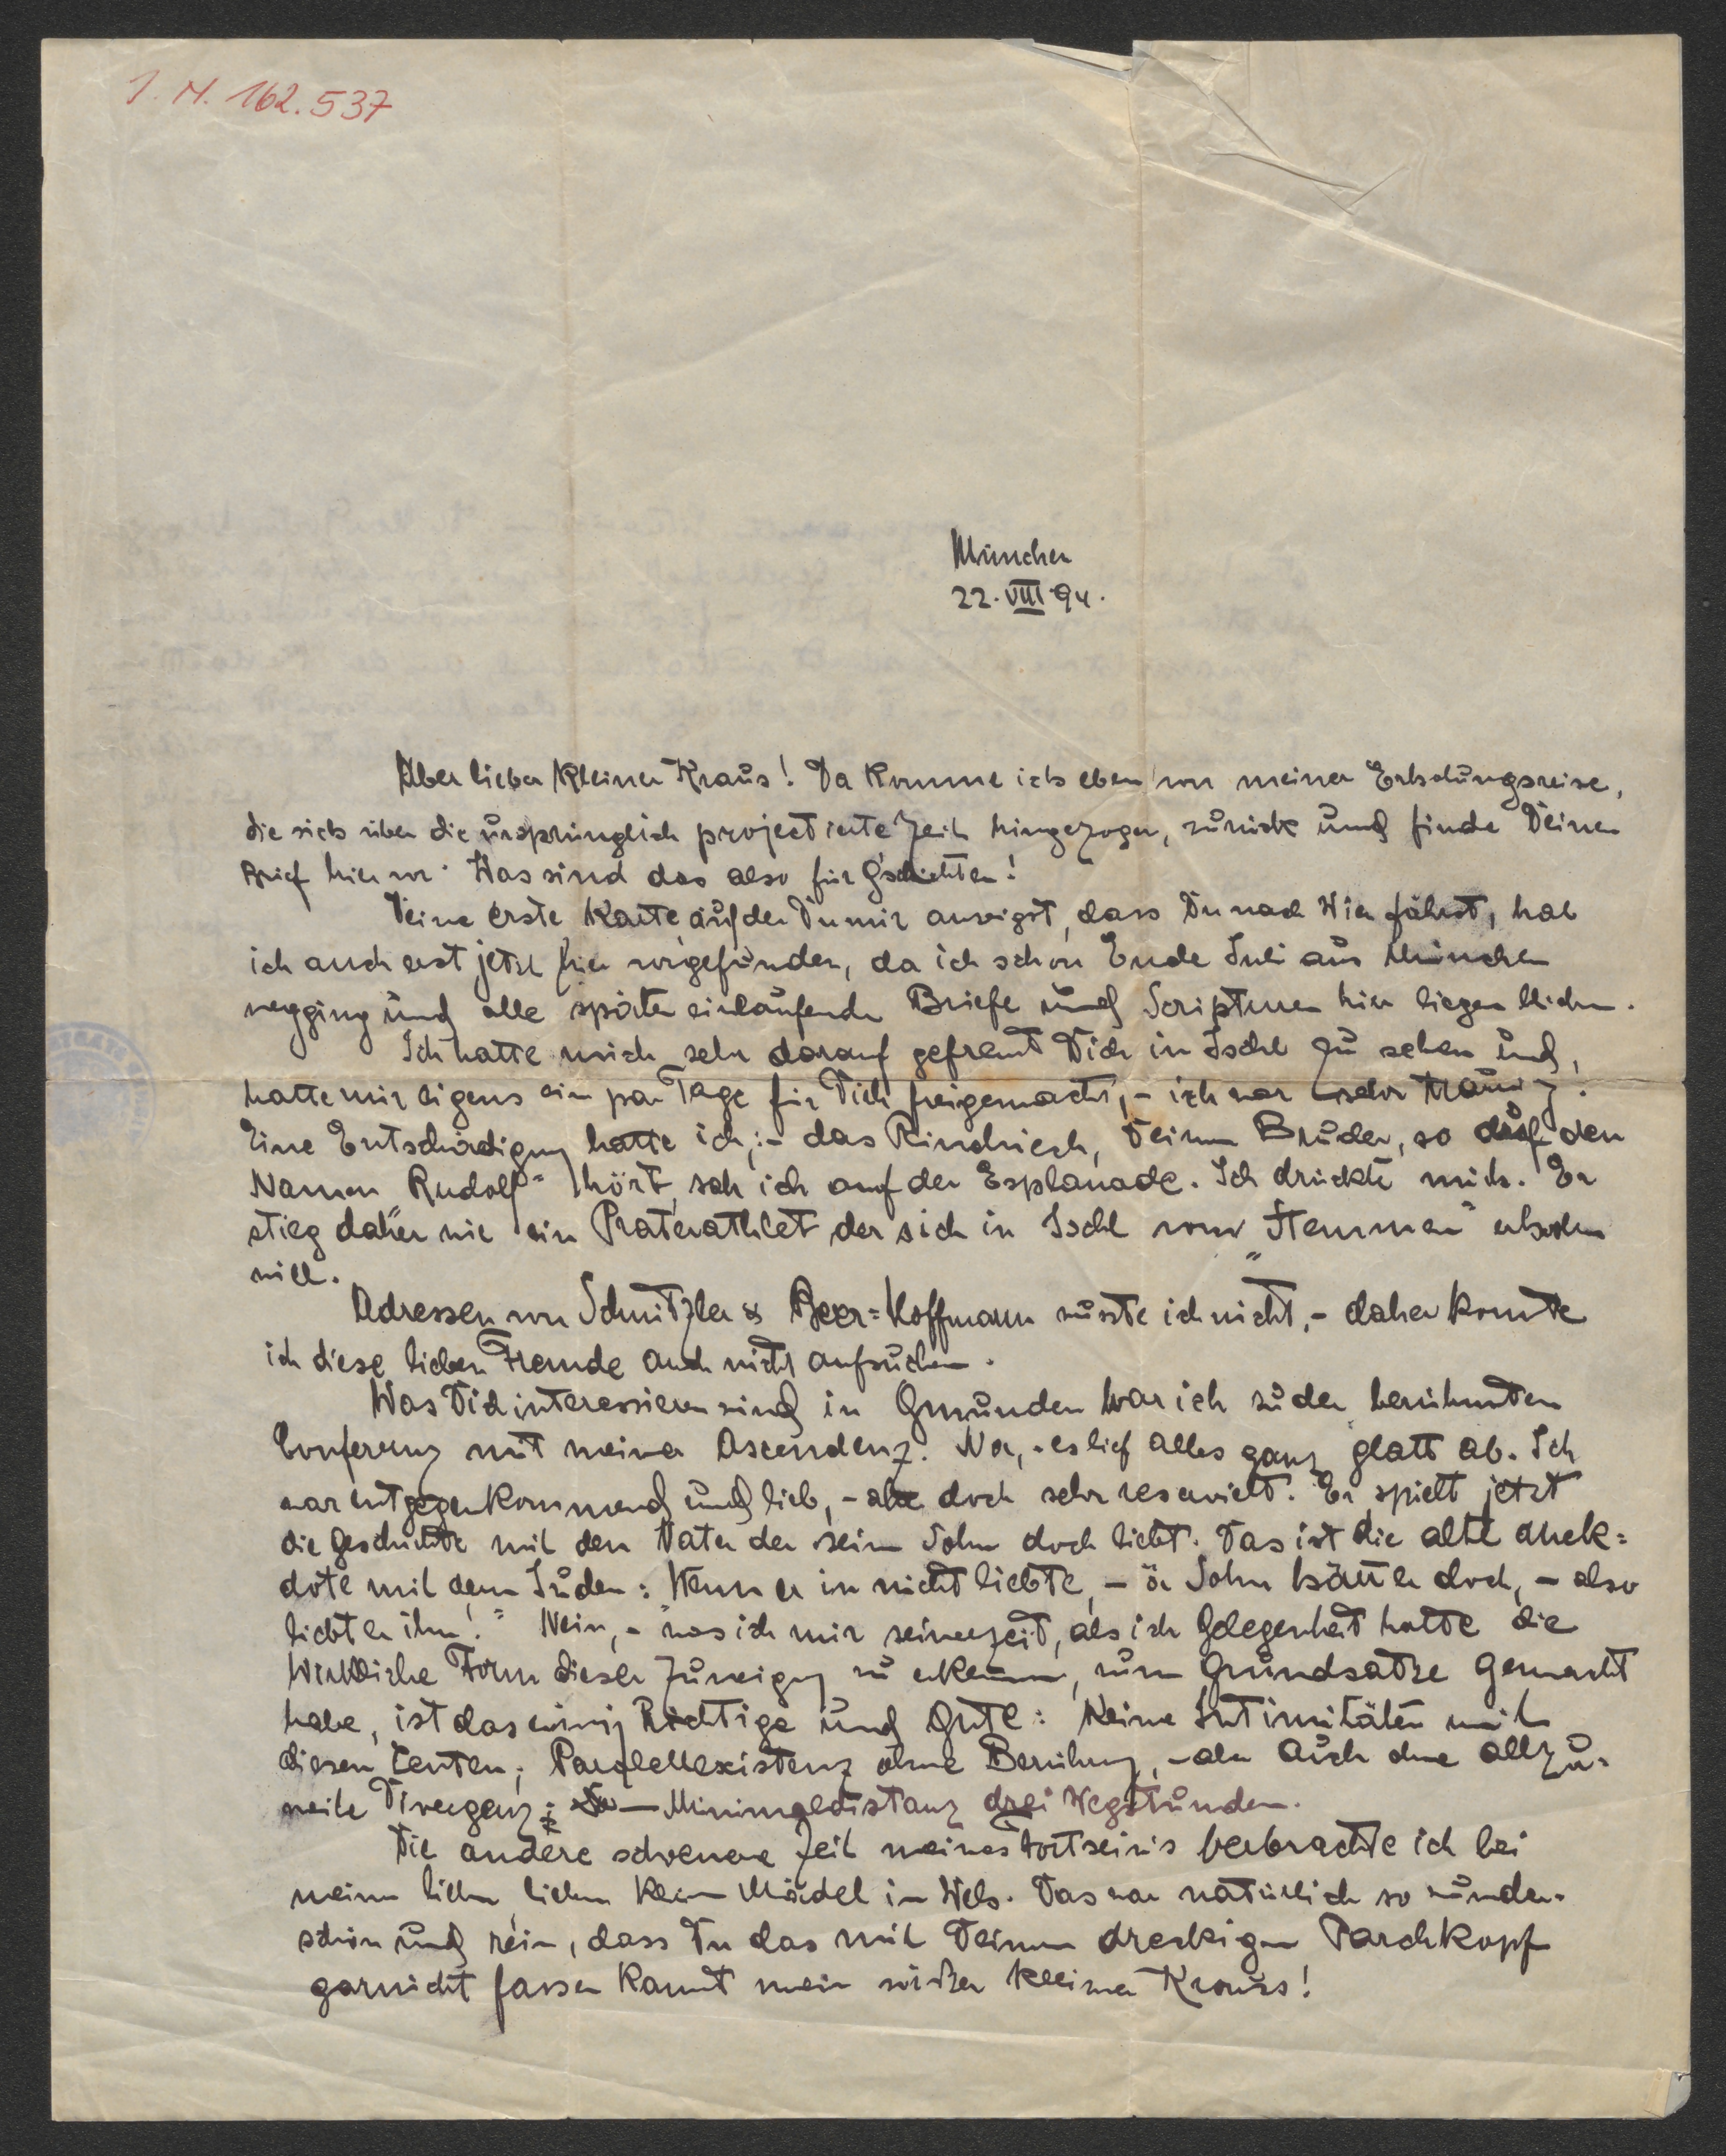 J. N. 162.537
München
22. VIII 94.
Aber lieber kleiner Kraus! Da komme ich eben von meiner Erholungsreise,
die sich über die ursprünglich projectierte Zeit hingezogen, zurück und finde Deinen
Brief hier vor. Was sind das also für G'schichten!
Deine erste Karte, auf der Du mir anzeigst, dass Du nach Wien fährst, hab
ich auch erst jetzt hier vorgefunden, da ich schon Ende Juli aus München
wegging und alle später einlaufenden Briefe und Scripturen hier liegen blieben.
Ich hatte mich sehr darauf gefreut Dich in Ischl zu sehen und
hatte mir eigens ein paar Tage für Dich freigemacht, – ich war sehr traurig.
Eine Entschädigung hatte ich; – das Rindviech, Deinen Bruder, so auf den
Namen „Rudolf“ hört, sah ich auf der Esplanade. Ich drückte mich. Er
stieg daher wie ein Praterathlet der sich in Ischl vom „Stemmen“ erholen
will.
Adressen von Schnitzler & Beer=Hoffmann wusste ich nicht, – daher konnte
ich diese lieben Freunde auch nicht aufsuchen.
Was Dich interessieren wird in Gmunden war ich zu der berühmten
Conferenz mit meiner Ascendenz. Na, – es lief alles ganz glatt ab. Ich
war entgegenkommend und lieb, – aber doch sehr reserviert. Er spielt jetzt
die Geschichte mit dem Vater der seinen Sohn doch liebt. Das ist die alte Anek=
dote mit dem Juden: Wenn er ihn nicht liebte, – Sohn doch, – also
liebt er ihn!“ Nein, – was ich mir seinerzeit, als ich Gelegenheit hatte die
wirkliche Form dieser Zuneigung zu erkennen, zum Grundsatze gemacht
habe, ist das einzig Richtige und Gute: Keine Intimitäten mit
diesen Leuten; Parallelexistenz ohne Berührung, – aber auch ohne allzu=
weite Divergenz; – Minimaldistanz drei Wegstunden.
Die andere schönere Zeit meines Fortsein's verbrachte ich bei
meinem lieben, lieben kleinen Mädel in Wels. Das war natürlich so wunder=
schön und rein, dass Du das mit Deinem dreckigen Parchkopf
garnicht fassen kannst mein süßer kleiner Kraus!